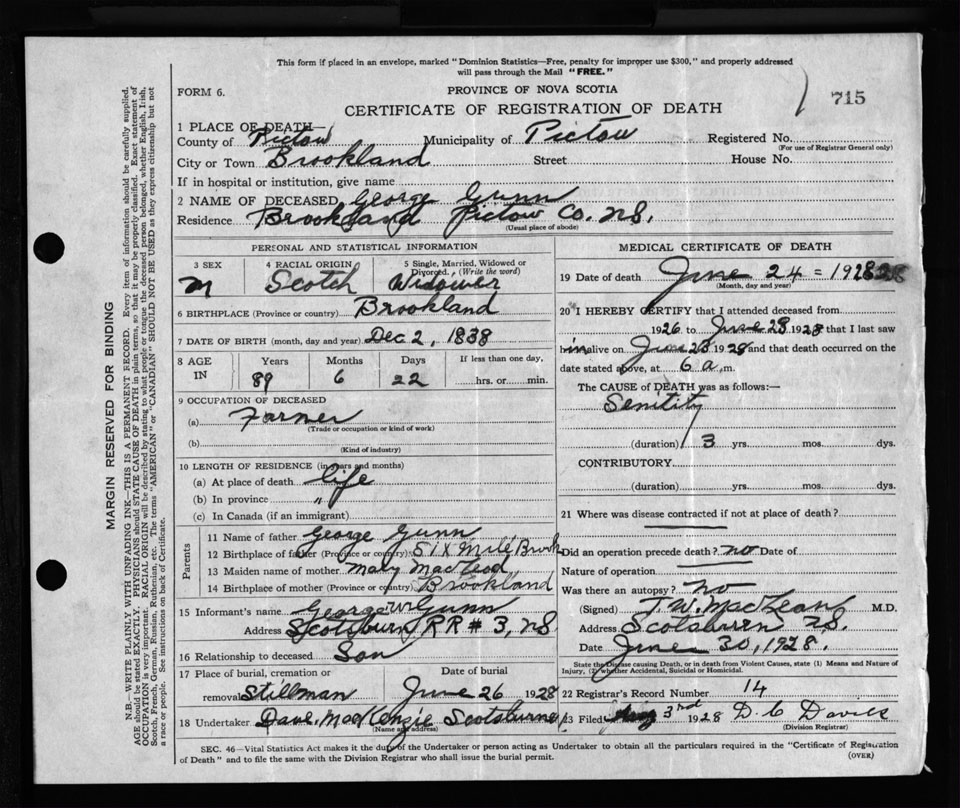 This form if placed in an envelope, marked "Dominion Statistics—Free, penalty for improper use $300," and properly addressed
will pass through the Mail "FREE."
FORM 6.
PROVINCE OF NOVA SCOTIA
CERTIFICATE OF REGISTRATION OF DEATH
715
1 PLACE OF DEATH—
County of Pictou Municipality of Pictou Registered No.
(For use of Registrar General only)
City or Town Brookland Street House No.
If in hospital or institution, give name
2 NAME OF DECEASED George Gunn
Residence Brookland Pictou Co. N.S.
(Usual place of abode)
PERSONAL AND STATISTICAL INFORMATION
3 SEX 4 RACIAL ORIGIN 5 Single, Married, Widowed or
Divorced. (Write the word)
M Scotch Widower
6 BIRTHPLACE (Province or country) Brookland
7 DATE OF BIRTH (month, day and year) Dec 2, 1838
8 AGE IN Years Months Days If less than one day,
89 6 22 hrs. or min.
9 OCCUPATION OF DECEASED
(a) Farmer
(Trade or occupation or kind of work)
(b)
(Kind of industry)
10 LENGTH OF RESIDENCE (in years and months)
(a) At place of death life
(b) In province "
(c) In Canada (if an immigrant)
Parents
11 Name of father George Gunn
12 Birthplace of father (Province or country) Six Mile Brook
13 Maiden name of mother Mary MacLeod
14 Birthplace of mother (Province or country) Brookland
15 Informant's name George W Gunn
Address Scotsburn RR # 3, NS
16 Relationship to deceased Son
17 Place of burial, cremation or Date of burial
removal Stillman June 26 1928
18 Undertaker Dave MacKenzie Scotsburne
(Name and address)
MEDICAL CERTIFICATE OF DEATH
19 Date of death June 24 = 1928
(Month, day and year)
20 I HEREBY CERTIFY that I attended deceased from
1926 to June 23 1928 that I last saw
him alive on June 23 1928 and that death occurred on the
date stated above, at 6 a. m.
The CAUSE of DEATH was as follows:—
Senility
(duration) 3 yrs. mos. dys.
CONTRIBUTORY
(duration) yrs. mos. dys.
21 Where was disease contracted if not at place of death?
Did an operation precede death? no Date of
Nature of operation
Was there an autopsy? no
(Signed) J. W. MacLean M.D.
Address Scotsburn N.S.
Date June 30, 1928.
State the Disease causing Death, or in death from Violent Causes, state (1) Means and Nature of
Injury, (2) whether Accidental, Suicidal or Homicidal.
22 Registrar's Record Number 14
23 Filed 3rd 1928 D. C Davies
(Division Registrar)
SEC. 46—Vital Statistics Act makes it the duty of the Undertaker or person acting as Undertaker to obtain all the particulars required in the "Certificate of Registration
of Death" and to file the same with the Division Registrar who shall issue the burial permit.
(OVER)
MARGIN RESERVED FOR BINDING
N.B.—WRITE PLAINLY WITH UNFADING INK—THIS IS A PERMANENT RECORD. Every item of information should be carefully supplied.
AGE should be stated EXACTLY. PHYSICIANS should STATE CAUSE OF DEATH in plain terms, so that it may be properly classified. Exact statement of
OCCUPATION is very important. RACIAL ORIGIN will be described by stating to what people or tongue the deceased person belonged, whether English, Irish,
Scotch, French, German, Russian, Ruthenian, etc. The terms "AMERICAN" or "CANADIAN" SHOULD NOT BE USED as they express citizenship but not
a race or people. See instructions on back of Certificate.